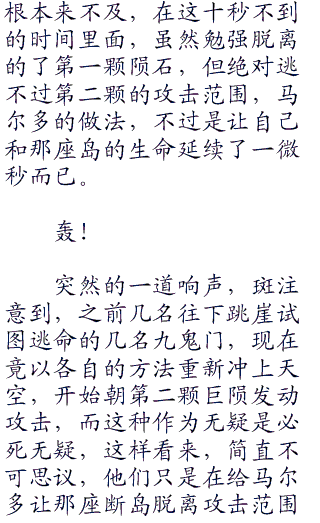 根本来不及，在这十秒不到
的时间里面，虽然勉强脱离
的了第一颗陨石，但绝对逃
不过第二颗的攻击范围，马
尔多的做法，不过是让自己
和那座岛的生命延续了一微
秒而已。
轰！
突然的一道响声，斑注
意到，之前几名往下跳崖试
图逃命的几名九鬼门，现在
竟以各自的方法重新冲上天
空，开始朝第二颗巨陨发动
攻击，而这种作为无疑是必
死无疑，这样看来，简直不
可思议，他们只是在给马尔
多让那座断岛脱离攻击范围